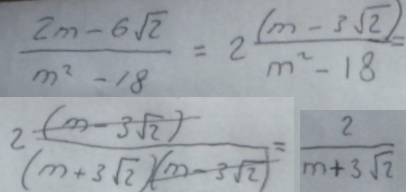 (2m - 6√2)/(m² - 18) = 2 (m - 3√2)/(m² - 18) =
2 (m - 3√2)/((m + 3√2)(m - 3√2)) = 2/(m + 3√2)